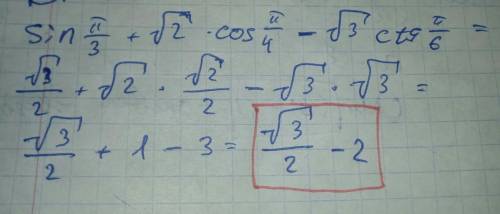 sin π/3 + √2 · cos π/4 − √3 ctg π/6 =
√3/2 + √2 · √2/2 − √3 · √3 =
√3/2 + 1 − 3 = √3/2 − 2